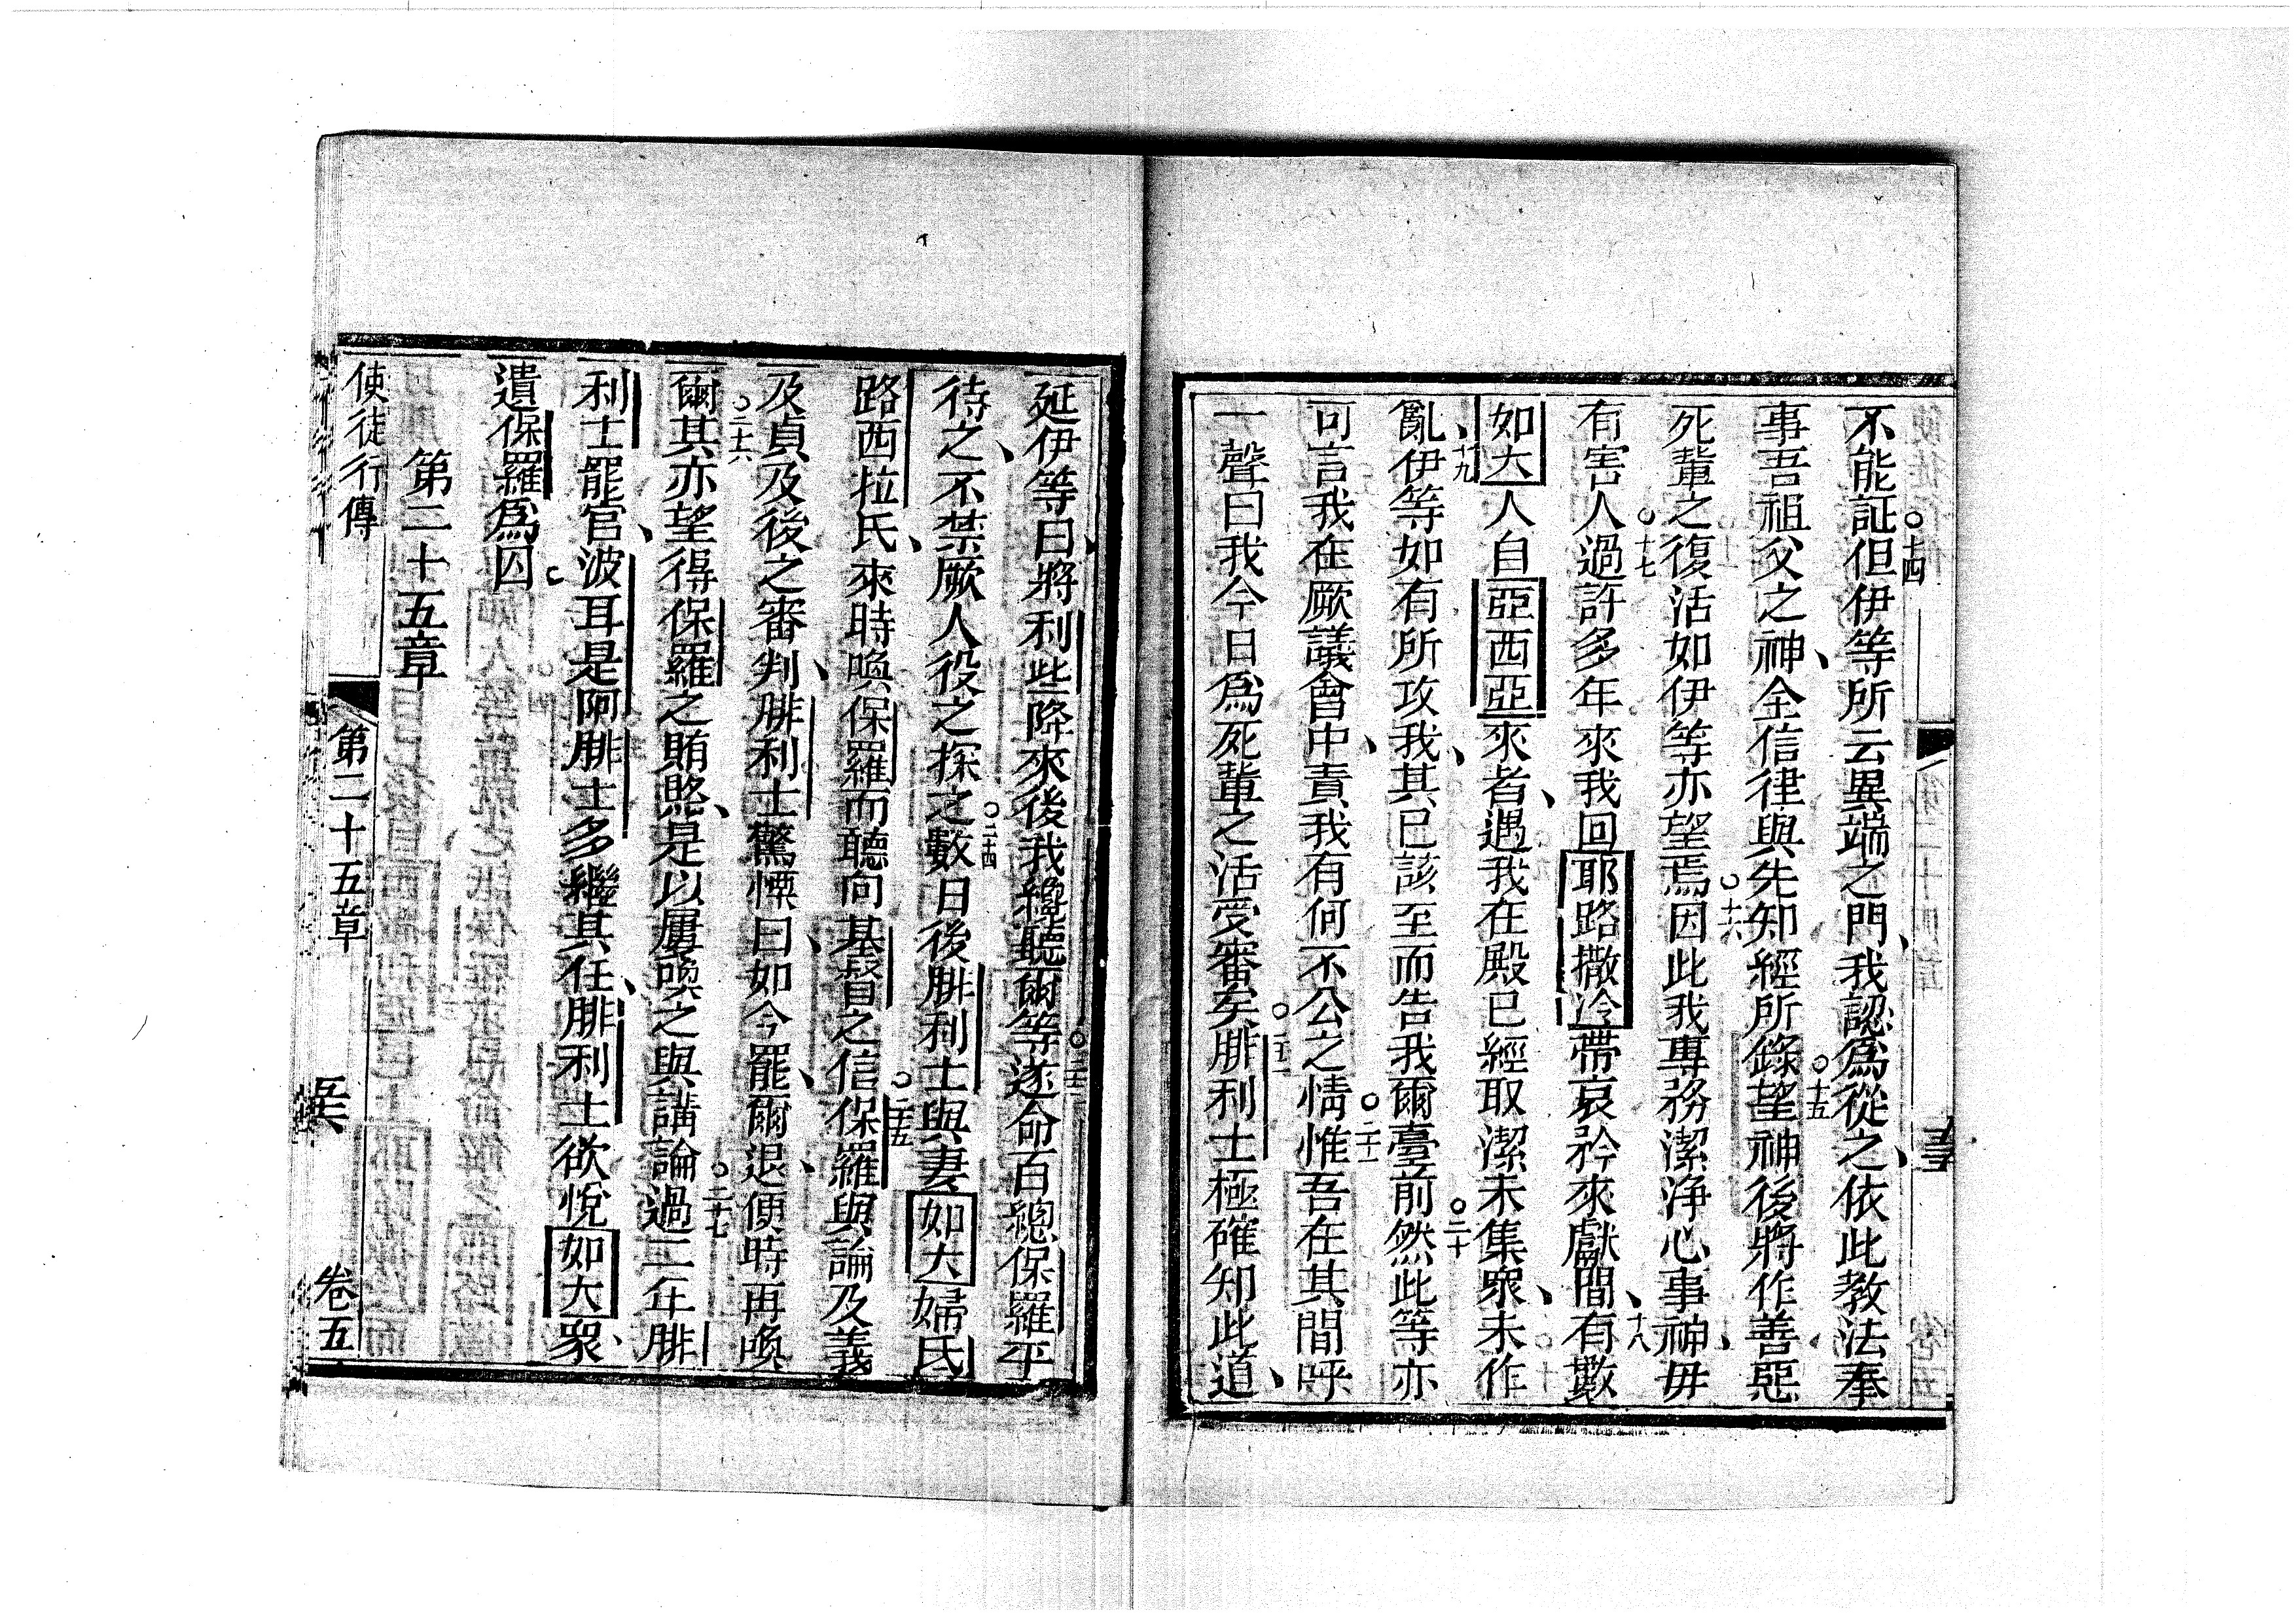 不能証○十四但伊等所云異端之門、我認爲從之、依此教法奉
事吾祖父之神、全信律與先知經所錄○十五望神後將作善惡
死輩之復活如伊等亦望焉○十六因此我專務潔淨心事神、毋
有害人○十七過許多年來我回耶路撒冷帶哀矜來獻間、○十八有數
如大人自亞西亞來者、遇我在殿已經取潔未集衆、未作
亂、○十九伊等如有所攻我、其已該至而告我爾臺前○二十然此等亦
可言我在厥議會中、責我有何不公之情○二十一惟吾在其間呼
一聲曰我今日爲死輩之活受審矣○二十二腓利士極確知此道、
延伊等曰、將利些降來後我纔聽爾等○二十三遂命百總保羅平
待之、不禁厥人役之探之○二十四數日後腓利士與妻如大婦氏
路西拉氏、來時喚保羅而聽向基督之信○二十五保羅與論及義
及貞及後之審判、腓利士驚慄曰、如今罷、爾退、便時再喚
爾○二十六其亦望得保羅之賄賂、是以屢喚之與講論○二十七過二年腓
利士罷官、波耳是阿腓士多繼其任、腓利士欲悅如大衆、
遺保羅爲囚
第二十五章
使徒行傳
第二十五章
卷五